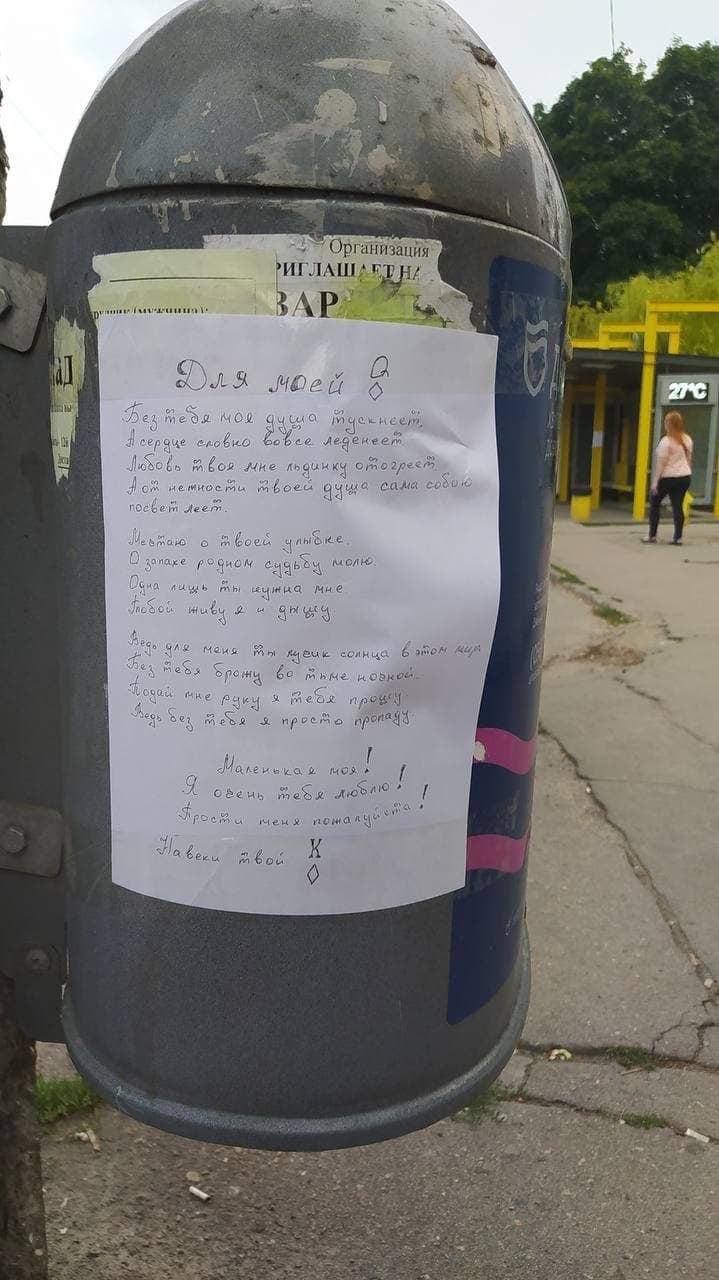 Организация
РИГЛАШАЕТ НА
ВАР
(мужчина):
аД
27°C
Для моей Q
◇
Без тебя моя душа тускнеет,
А сердце словно вовсе леденеет
Любовь твоя мне льдинку отогреет,
А от нежности твоей душа сама собою
посветлеет.
Мечтаю о твоей улыбке.
О запахе родном судьбу молю.
Одна лишь ты нужна мне.
Тобой живу я и дышу.
Ведь для меня ты лучик солнца в этом мире
Без тебя брожу во тьме ночной.
Подай мне руку я тебя прошу.
Ведь без тебя я просто пропаду.
Маленькая моя!
Я очень тебя люблю!
Прости меня пожалуйста!
Навеки твой К
◇